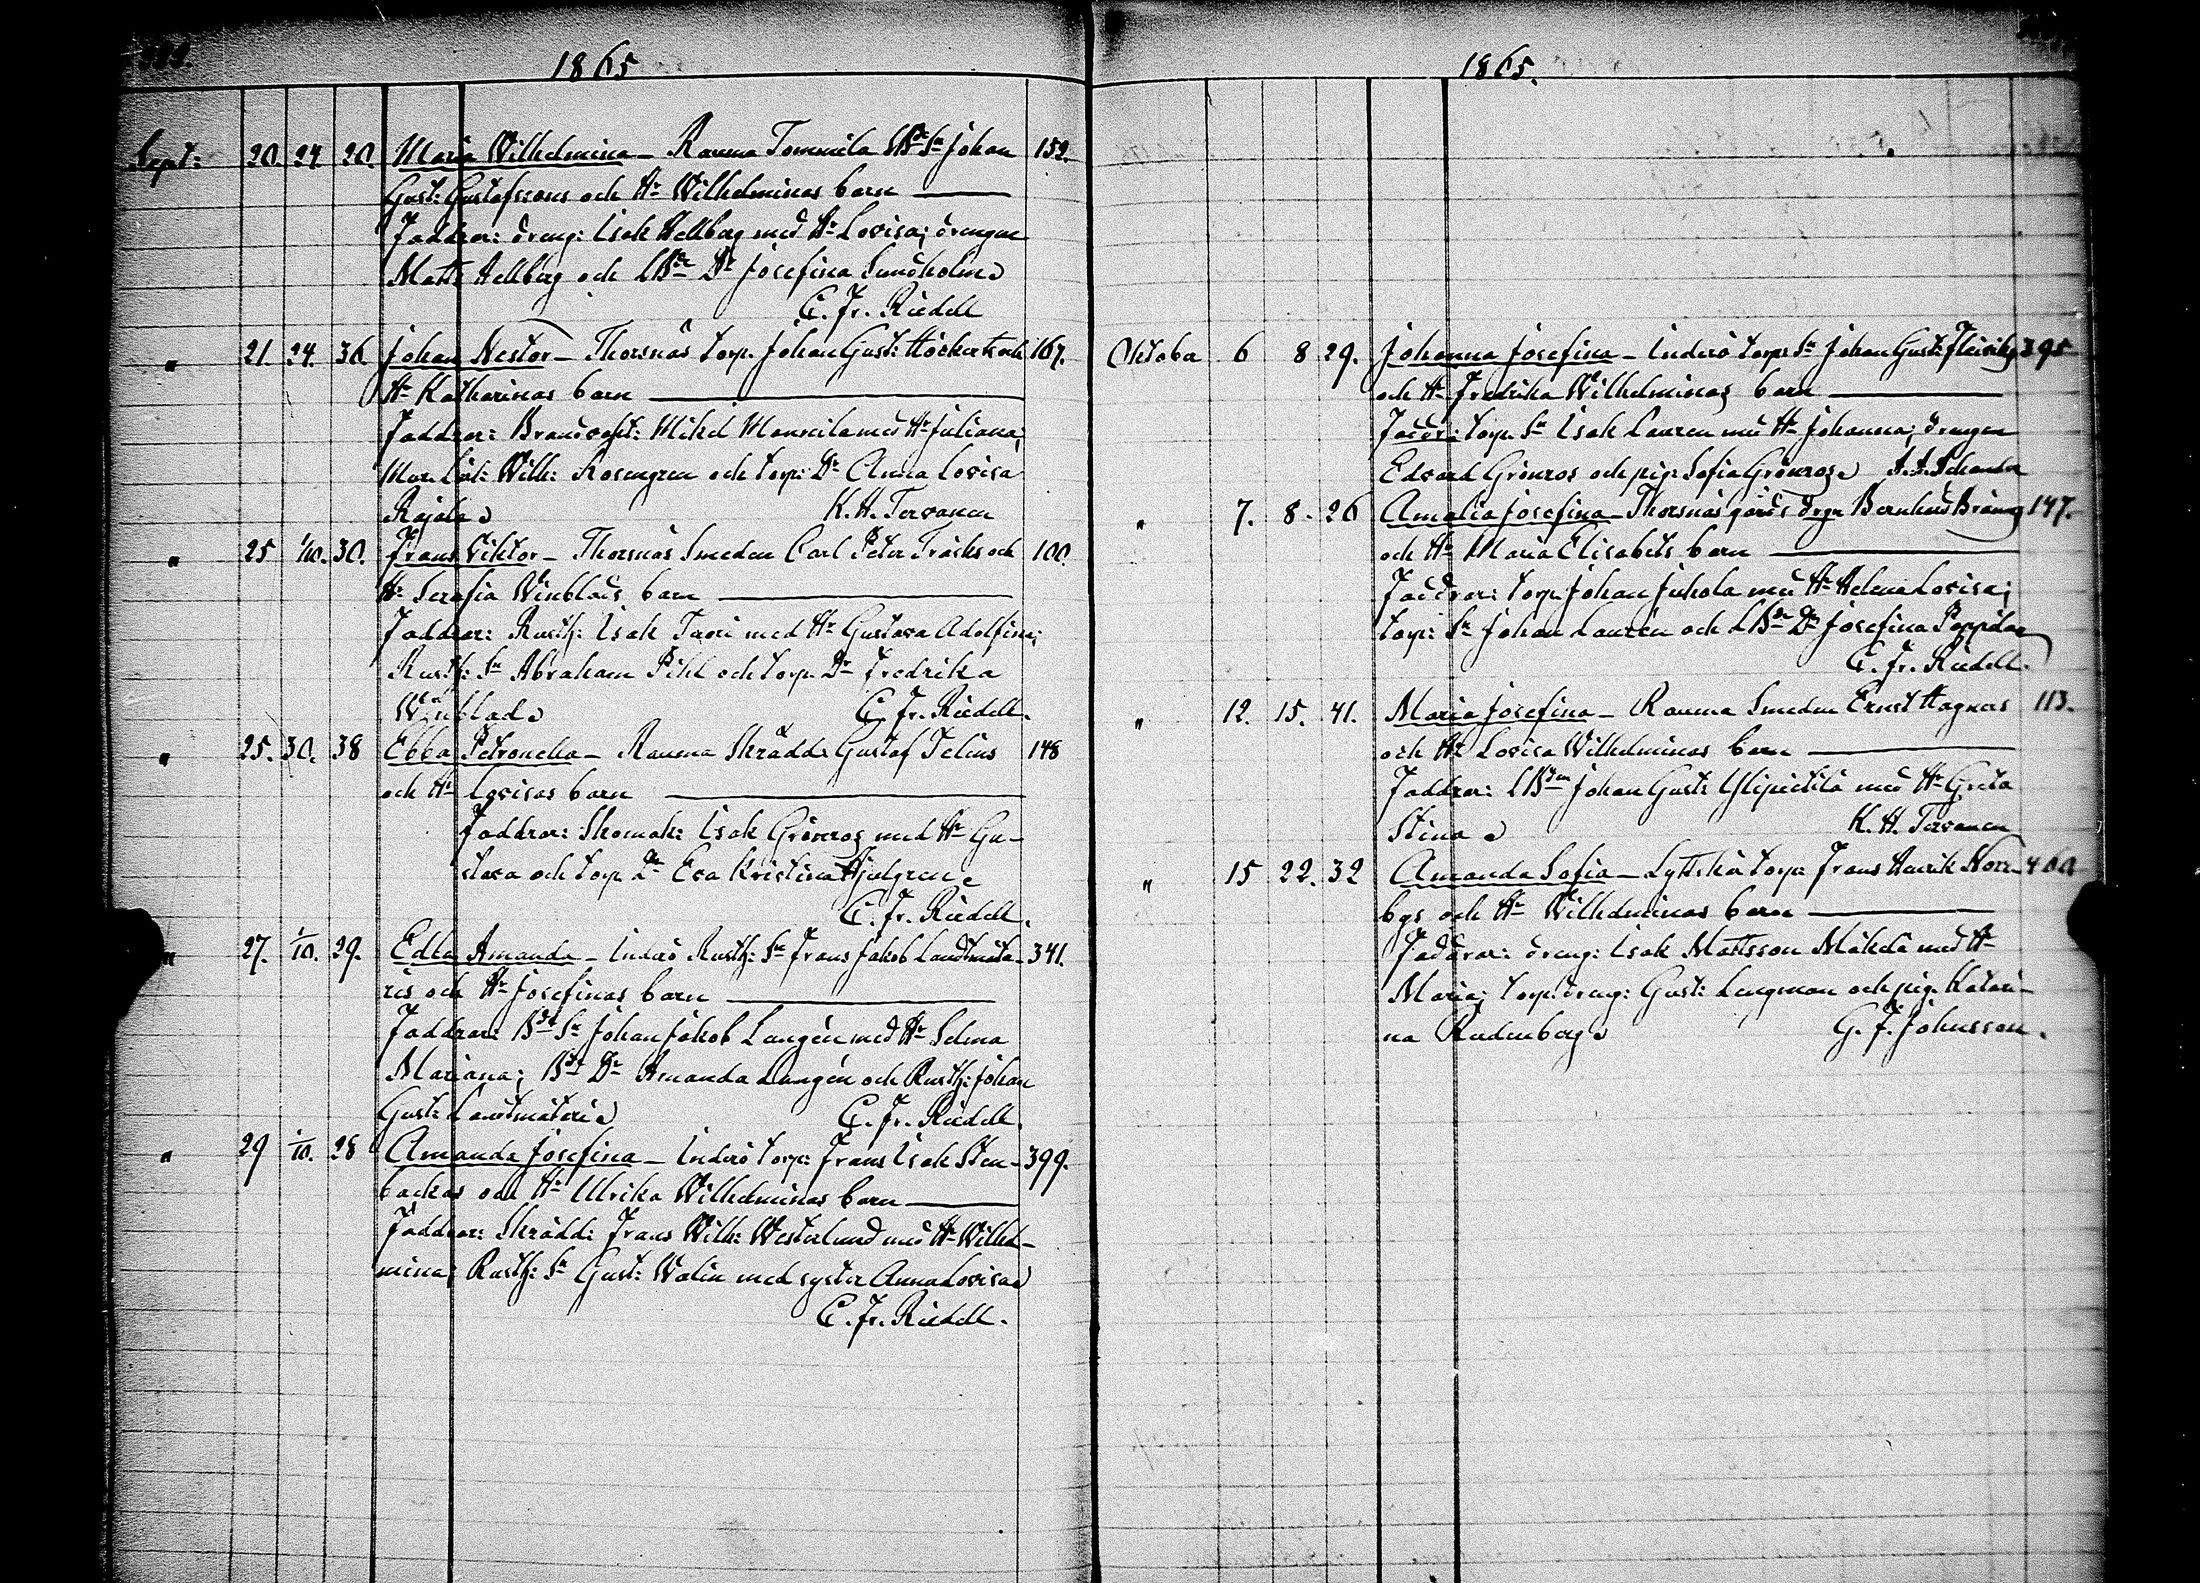 1865
Sept: 20. 24. 20. Maria Wilhelmina – Rauma Tommila LBde Sn Johan 152.
Gust: Gustafssons och Hu Wilhelminas barn
Faddrar: dreng: Isak Hellberg med Hu Lovisa; drengen
Matts Hellberg och LBde Dr Josefina Sundholm
C. Fr. Riedell
" 21. 24. 36 Johan Nestor – Thorsnäs torp. Johan Gust: Höckerts och 167.
Hu Katharinas barn
Faddrar: Brandvakt: Mikel Mannila med Hu Juliana;
Wilh: Rosengren och torp: Dr Anna Lovisa
Rajala
K. H. Tervanen
" 25 1/10. 30. Frans Viktor – Thorsnäs Smeden Carl Peter Träsks och 100.
Hu Serafia Winblads barn
Faddrar: Rusth: Isak Tavi med Hu Gustava Adolfina;
Rusth: Sn Abraham Pihl och torp. Dr Fredrika
Winblad
C. Fr. Riedell.
" 25. 30. 38 Ebba Petronella – Rauma Skrädd: Gustaf Telins 148
och Hu Lovisas barn
Faddrar: Skomak: Isak Grönros med Hu Gu-
stava och torp Dr Eva Kristina Hjulgren
C. Fr. Riedell.
" 27. 1/10. 29. Edla Amanda – Inderö Rusth: Sn Frans Jakob Landtmäta- 341.
ris och Hu Josefinas barn
Faddrar: Bde Sn Johan Jakob Langén med Hu Selma
Mariana; Bde Dr Amanda Langén och Rusth: Johan
Gust: Landtmäteri
C. Fr. Riedell.
" 29 1/10. 28 Amanda Josefina – Inderö torp: Frans Isak Sten- 399.
backas och Hu Ulrika Wilhelminas barn
Faddrar: Skrädd: Frans Wilh: Westerlund med Hu Wilhel-
mina; Rusth: Sn Gust: Walin med syster Anna Lovisa
C. Fr. Riedell.
1865.
Oktober 6 8 29. Johanna Josefina – Inderö torp: Sn Johan Gust: 395
och Hu Fredrika Wilhelminas barn
Faddr: torp. Sn Isak Lauren med Hu Johanna; drengen
Edvard Grönros och pig: Sofia Grönros
" 7. 8 26 Amalia Josefina – Thorsnäs gårds drgn Bernhard 147.
och Hu Maria Elisabets barn
Faddrar: torp. Johan Juhola med Hu Helena Lovisa;
torp: Sn Johan Laurén och LBde Dr Josefina Peppilä
C. Fr. Riedell.
" 12. 15. 41. Maria Josefina – Rauma Smeden Ernst Hagners 113.
och Hu Lovisa Wilhelminas barn
Faddrar: LBden Johan Gust: Ylipietilä med Hu Greta
Stina
K. H. Tervanen
" 15 22. 32 Amanda Sofia – Lyttskär torp: Frans Henrik Norr- 460
bgs och Hu Wilhelminas barn
Faddrar: dreng: Isak Mattsson Mäkelä med Hu
Maria; torp: dreng: Gust: Lengman och pig. Katari-
na Rudenberg
G. F. Johnsson.